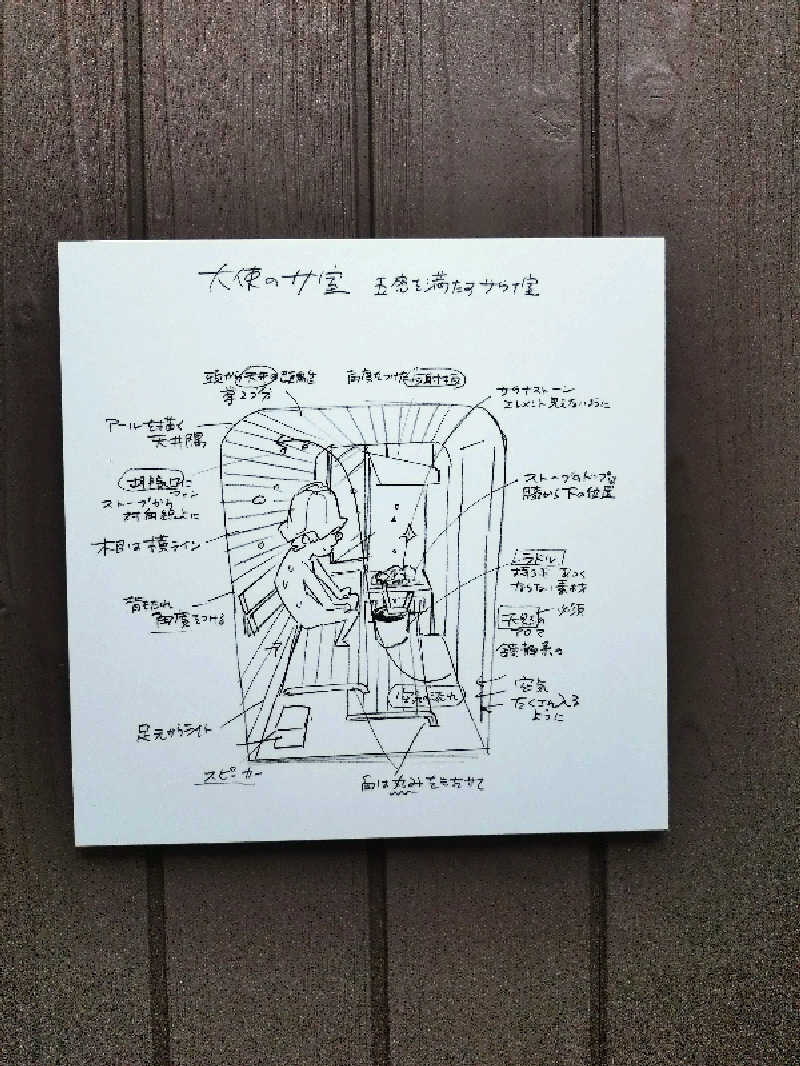 天使のサ室 五感を満たすサウナ室
頭から天井の距離を
掌2つ分
角度をつけた反射板
サウナストーン
エレメント見えないように
アールを描く
天井隅
ストーブから
対角線上に
ストーブトップは
膝から下の位置
木目は横ライン
ラドル
持つ所 あつく
ならない素材
背もたれ
角度をつける
必須
アロマ
空気の流れ
空気
たくさん入る
ように
足元からライト
スピーカー
角は丸みをもたせて